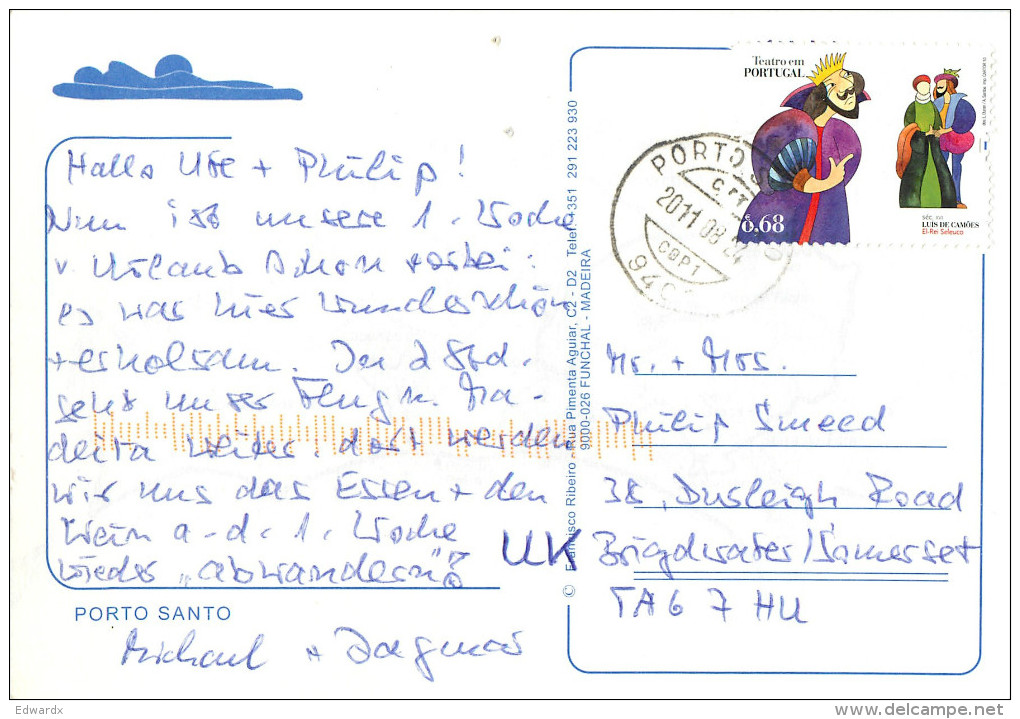 Hallo Ute + Philip!
Nun ist unsere 1. Woche
v. Urlaub schon vorbei:
es war hier wunderschön
+ erholsam. In 2 Std.
geht unser Flug n. Ma-
deira weiter. dort werden
wir uns das Essen + den
Wein a. d. 1. Woche
wieder „abwandern"!
PORTO SANTO
Michael + Dagmar
© Francisco Ribeiro - Rua Pimenta Aguiar, C2 - D2 Telef. +351 291 223 930
9000-026 FUNCHAL - MADEIRA
Teatro em
PORTUGAL
€0,68
séc. XVI
LUIS DE CAMÕES
El-Rei Seleuco
PORTO
2011 08
Mr. + Mrs.
Philip Smeed
38, Dusleigh Road
UK Brigdwater/Somerset
TA6 7HU
Edwardx
delcampe.net